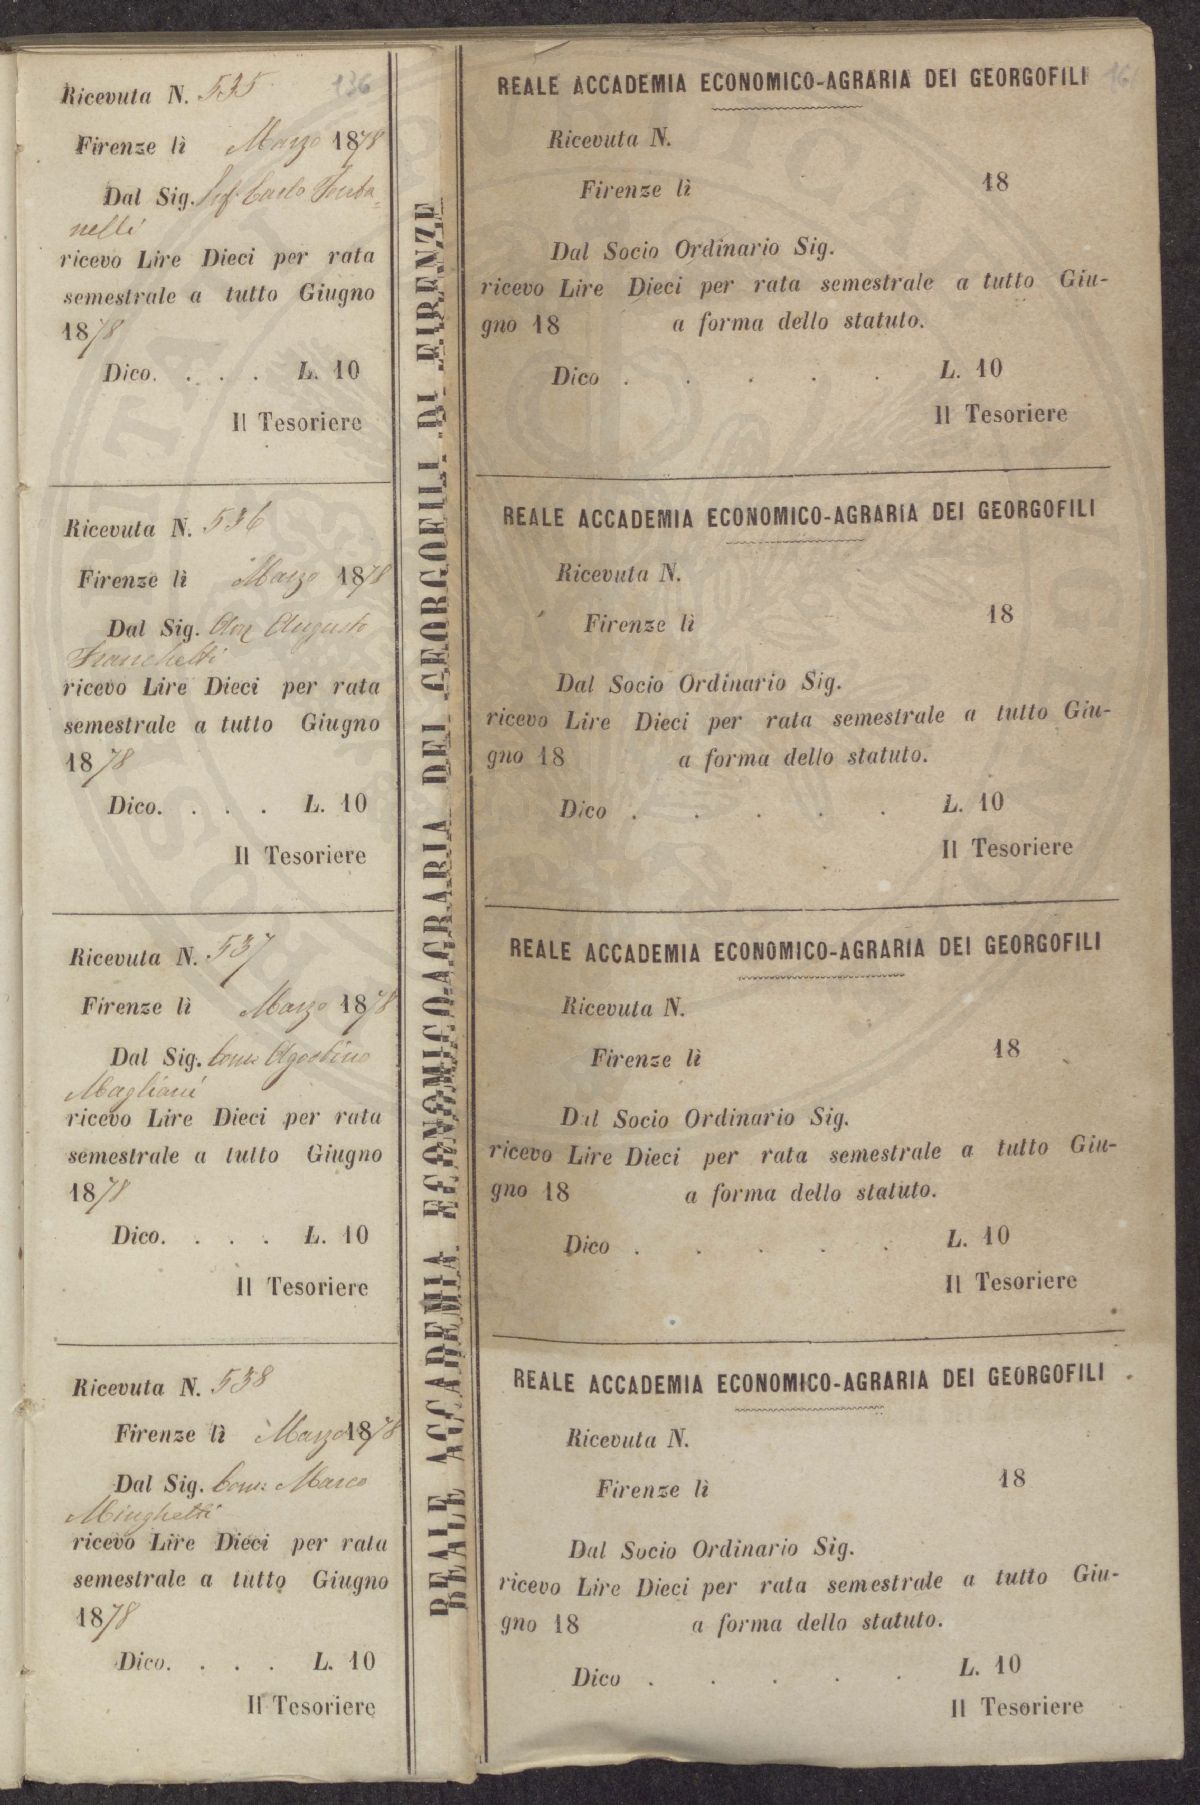 Ricevuta N. 535
136
Firenze lì Marzo 1878
Dal Sig. Carlo Fonta=
nelli
ricevo Lire Dieci per rata
semestrale a tutto Giugno
1878
Dico. . . . L. 10
Il Tesoriere
Ricevuta N. 536
Firenze lì Marzo 1878
Dal Sig. Augusto
Franchetti
ricevo Lire Dieci per rata
semestrale a tutto Giugno
1878
Dico. . . . L. 10
Il Tesoriere
Ricevuta N. 537
Firenze lì Marzo 1878
Dal Sig. Comm Agostino
Magliani
ricevo Lire Dieci per rata
semestrale a tutto Giugno
1878
Dico. . . . L. 10
Il Tesoriere
Ricevuta N. 538
Firenze lì Marzo 1878
Dal Sig. Comm Marco
Minghetti
ricevo Lire Dieci per rata
semestrale a tutto Giugno
1878
Dico. . . . L. 10
Il Tesoriere
REALE ACCADEMIA ECONOMICO AGRARIA DEI GEORGOFILI DI FIRENZE
REALE ACCADEMIA ECONOMICO-AGRARIA DEI GEORGOFILI
Ricevuta N.
Firenze lì 18
Dal Socio Ordinario Sig.
ricevo Lire Dieci per rata semestrale a tutto Giu-
gno 18 a forma dello statuto.
Dico . . . . . L. 10
Il Tesoriere
REALE ACCADEMIA ECONOMICO-AGRARIA DEI GEORGOFILI
Ricevuta N.
Firenze lì 18
Dal Socio Ordinario Sig.
ricevo Lire Dieci per rata semestrale a tutto Giu-
gno 18 a forma dello statuto.
Dico . . . . . L. 10
Il Tesoriere
REALE ACCADEMIA ECONOMICO-AGRARIA DEI GEORGOFILI
Ricevuta N.
Firenze lì 18
Dal Socio Ordinario Sig.
ricevo Lire Dieci per rata semestrale a tutto Giu-
gno 18 a forma dello statuto.
Dico . . . . . L. 10
Il Tesoriere
REALE ACCADEMIA ECONOMICO-AGRARIA DEI GEORGOFILI
Ricevuta N.
Firenze lì 18
Dal Socio Ordinario Sig.
ricevo Lire Dieci per rata semestrale a tutto Giu-
gno 18 a forma dello statuto.
Dico . . . . . L. 10
Il Tesoriere